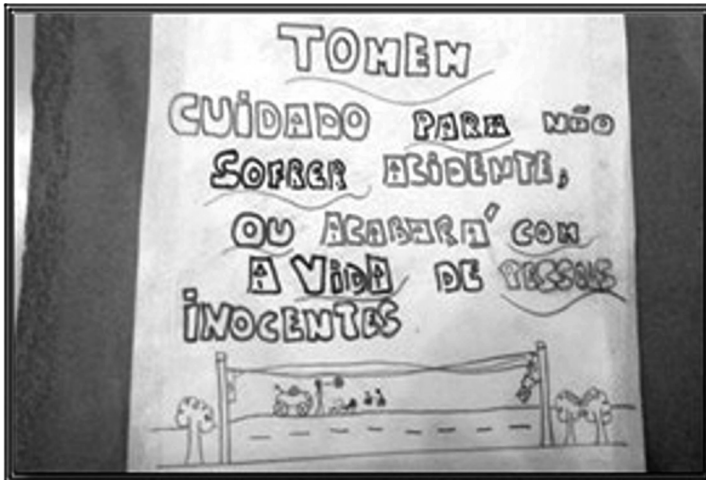 TOMEM
CUIDADO PARA NÃO
SOFRER ACIDENTE,
OU ACABARA´ COM
A ViDA DE PESSOAS
iNOCENTES